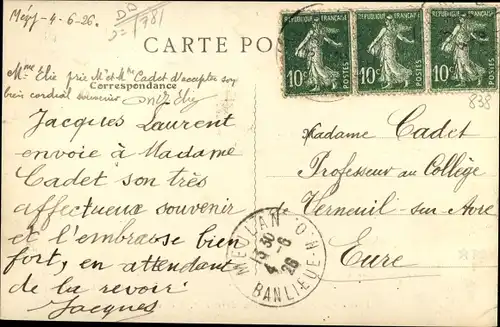 Mézy-4-6.26.
781
CARTE POS
Mme Elie prie Mr et Mme Cadet d'accepter son
bien cordial souvenir
Correspondance
Jacques Laurent
envoie à Madame
Cadet son très
affectueux souvenir
et l'embrasse bien
fort, en attendant
de la revoir.
Jacques
REPUBLIQUE FRANÇAISE
10c
POSTES
REPUBLIQUE FRANÇAISE
10c
POSTES
REPUBLIQUE FRANÇAISE
10c
POSTES
838
Madame Cadet
Professeur au Collège
de Verneuil-sur-Avre
Eure
MEULAN
4-6
26
BANLIEUE